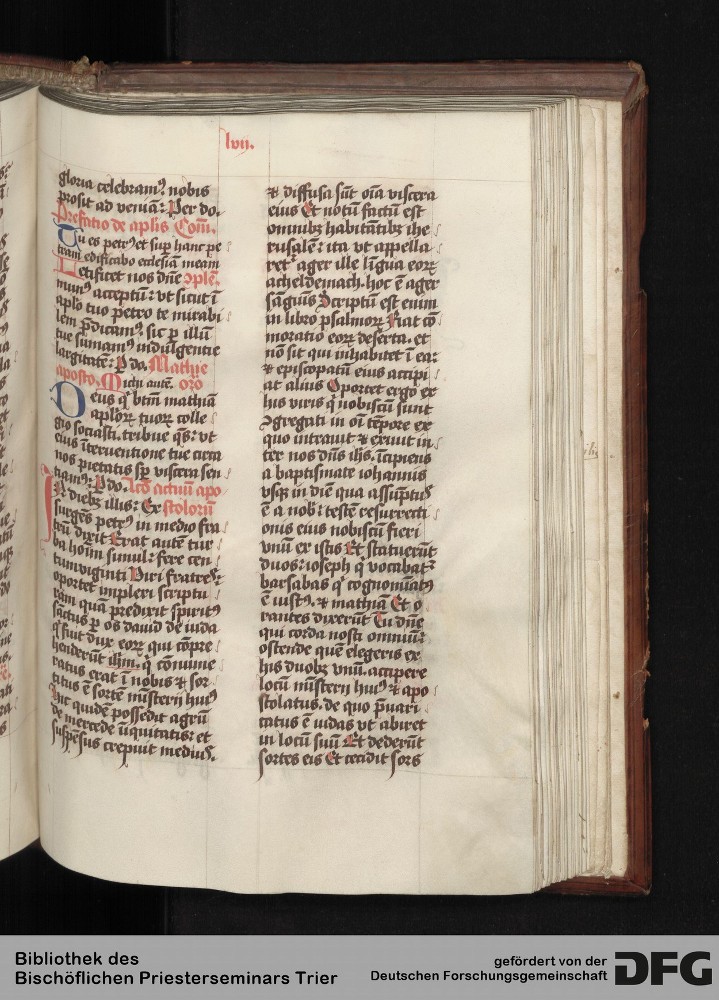 lvii.
gloria celebram⁹ nobis
prosit ad veniā: Per do.
Prefatio de aplis Com̄.
Tu es petr⁹ et sup hanc pe
tram edificabo ecclesiā meam
Letificet nos dn̄e ↄplē.
mun⁹ acceptū: vt sicut ī
aplo tuo petro te mirabi
lem p̄dicam⁹. sic p illū
tue sumam⁹ indulgentie
largitatē: P do. Mathie
aposto. Michi autē. oro
Deus q̄ btm̄ mathiā
aplor̄ꝝ tuoꝝ colle
gio sociasti. tribue q̄s: vt
eius īterventione tue circa
nos pietatis sp viscera sen
tiam⁹: P do. Lcō actuū apo
In diebꝫ illis: Ex stolorū
surgēs petr⁹ in medio fra
trū dixit Erat autē tur
ba hoīm simul: fere cen
tumviginti Viri fratres:
oportet impleri scriptu
ram quā predixit spirit⁹
sāctus p os dauid de iuda
q̄ fuit dux eoꝝ qui cōpre
henderūt ihm̄. q̄ cōnume
ratus erat ī nobis ⁊ sor
titus ē sortē mīsterii hui⁹
Hic quidē possedit agrū
de mercede īiquitatis: et
suspēsus crepuit medius.
⁊ diffusa sūt oīa viscera
eius Et notū factū est
omnibꝫ habitātibꝫ ihe
rusalē: ita vt appella
ret᷑ ager ille līgua eoꝝ
acheldemach. hoc ē ager
sāguīs Scriptū est enim
in libro psalmoꝝ Fiat cō
moratio eoꝝ deserta. et
nō sit qui inhabitet ī ea:
⁊ episcopatū eius accipi
at alius Oportet ergo ex
his viris q̄ nobiscū sunt
ↄgregati in oī tēpore ex
quo intrauit ⁊ exiuit in
ter nos dn̄s ihs. īcipiens
a baptismate iohannis
vsqꝫ in diē qua assūptus
ē a nob: testē resurrecti
onis eius nobiscū fieri
vnū ex istis Et statuerūt
duos: ioseph q̄ vocabat᷑
barsabas q̄ cognominat⁹
ē iust⁹. ⁊ mathiā Et o
rantes dixerūt Tu dn̄e
qui corda nosti omniū:
ostende quē elegeris ex
his duobꝫ vnū. accipere
locū mīsterii hui⁹ ⁊ apo
stolatus. de quo p̄uari
catus ē iudas vt abiret
in locū suū Et dederūt
sortes eis Et cecidit sors
Bibliothek des
Bischöflichen Priesterseminars Trier
gefördert von der
Deutschen Forschungsgemeinschaft
DFG